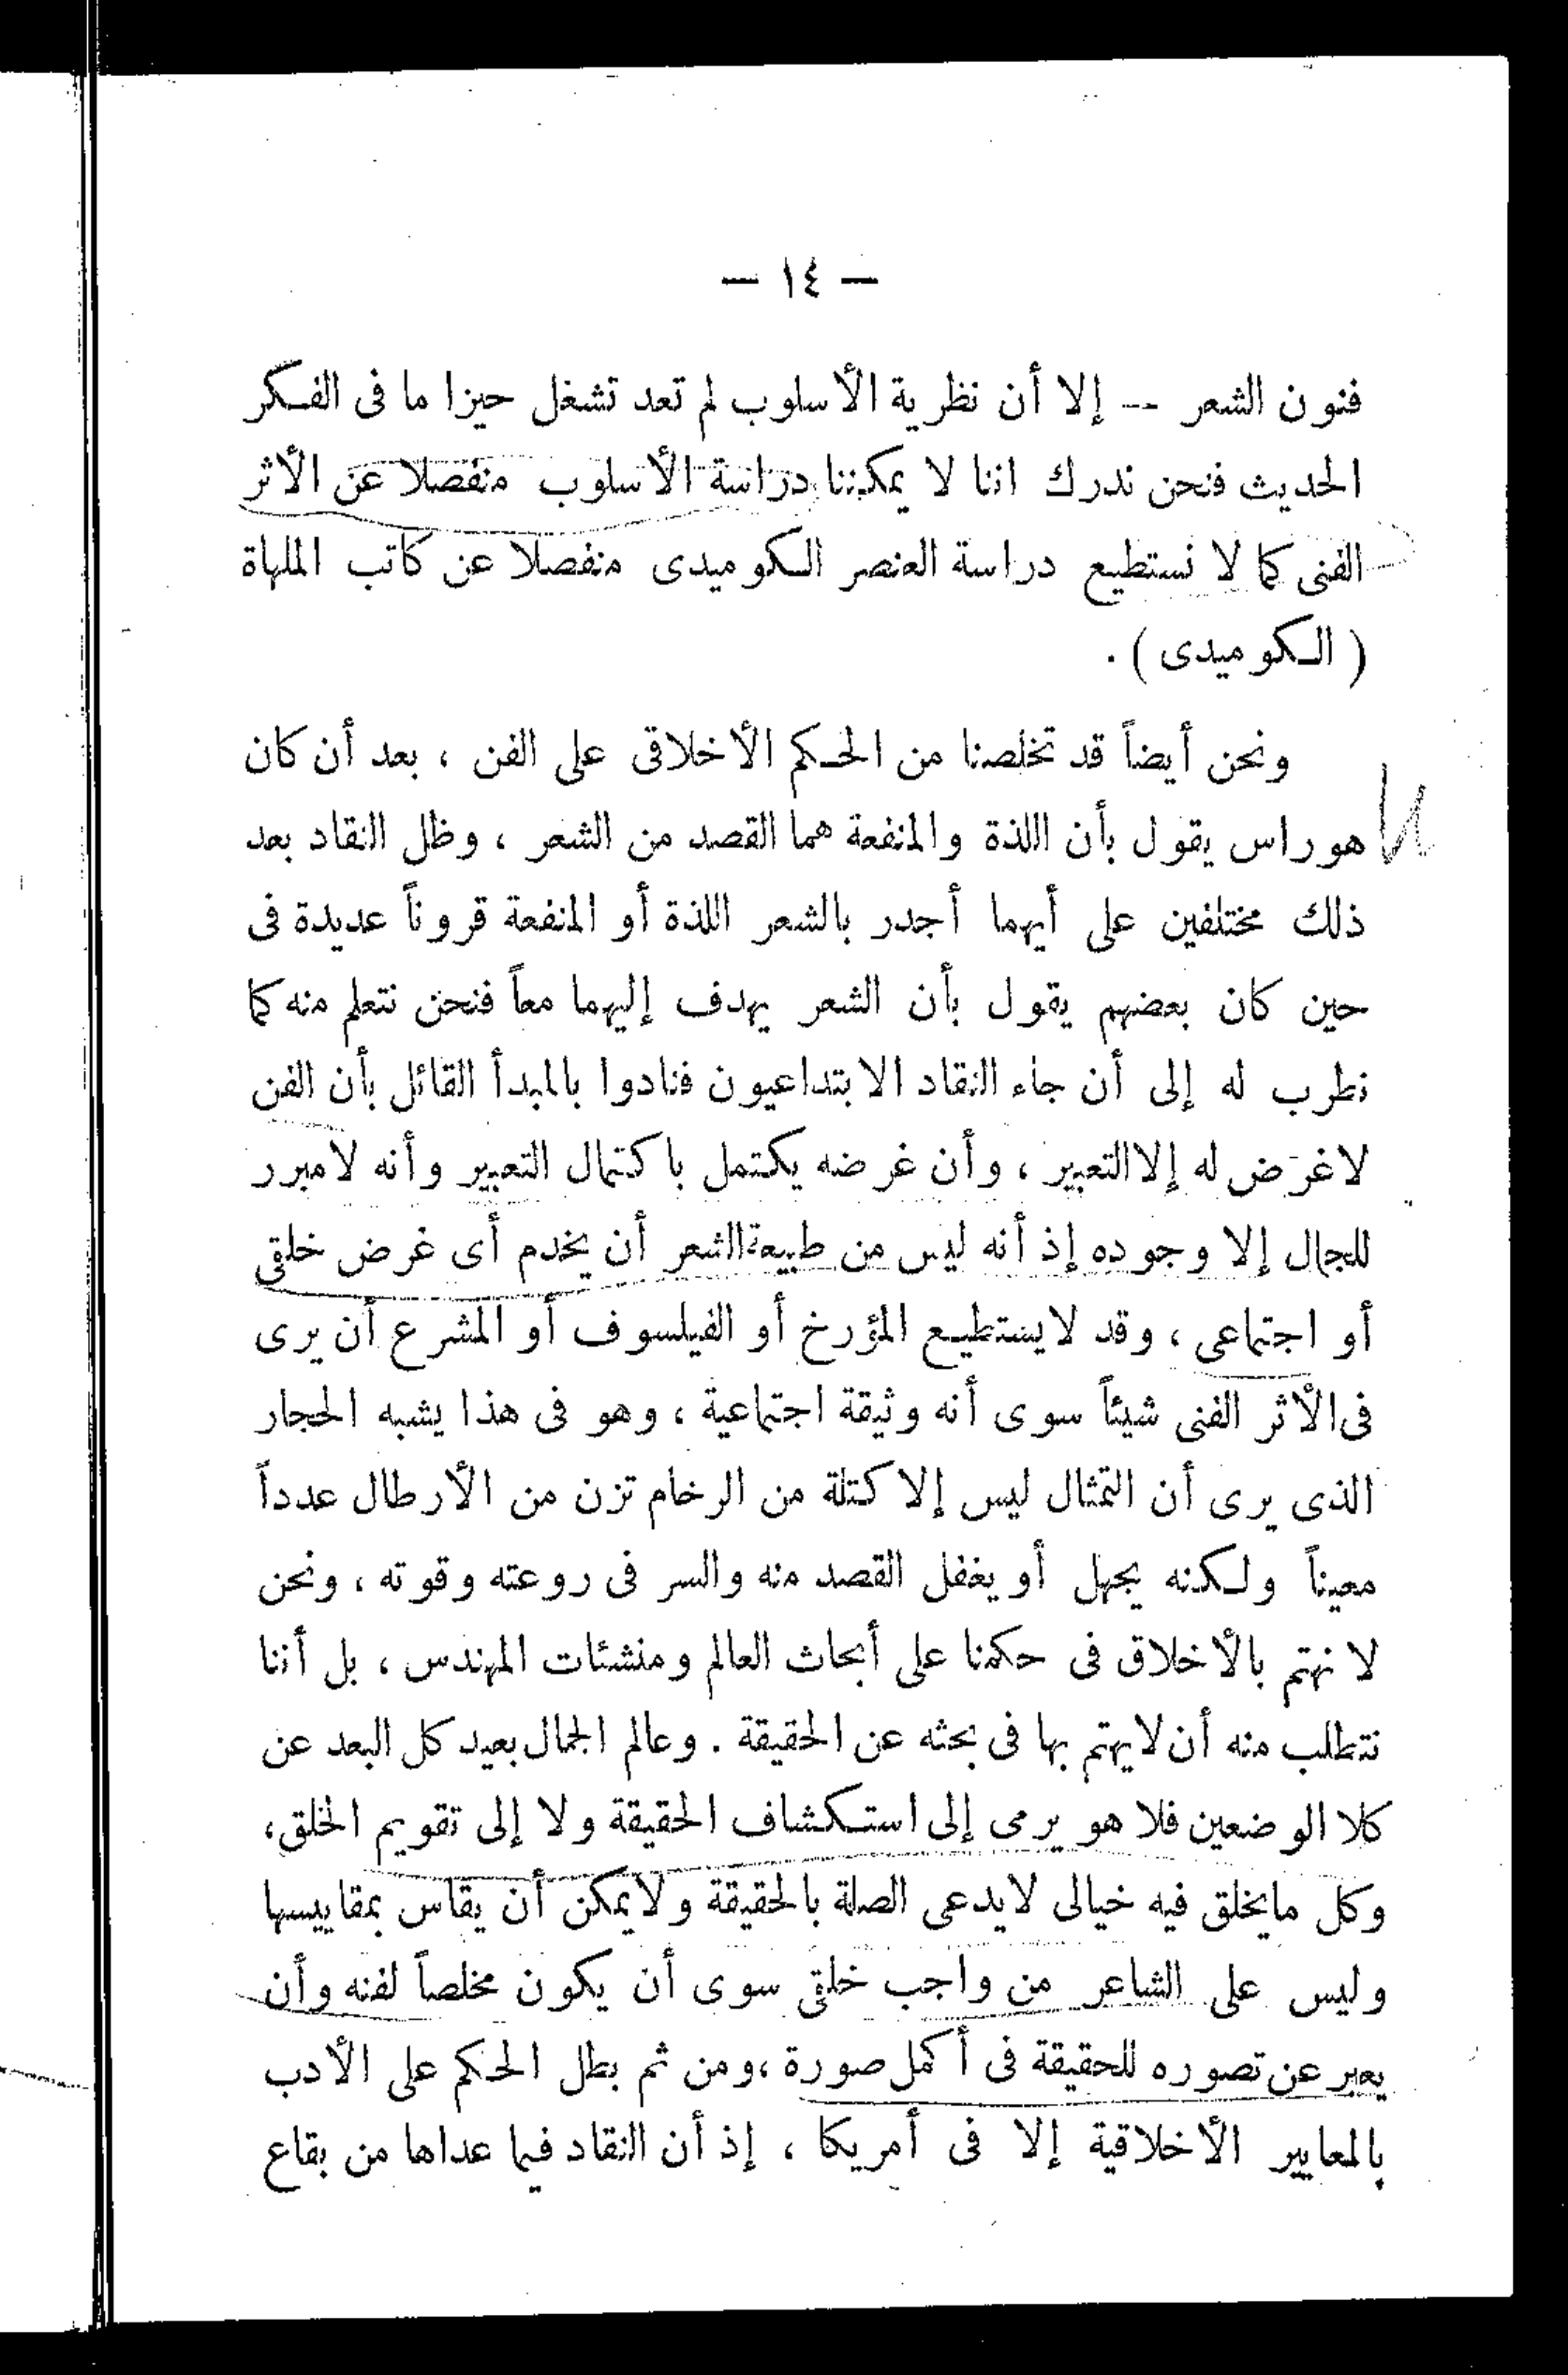 — ١٤ —
فنون الشعر -- إلا أن نظرية الأسلوب لم تعد تشغل حيزا ما فى الفكر
الحديث فنحن ندرك اننا لا يمكننا دراسة الأسلوب منفصلا عن الأثر
الفنى كما لا نستطيع دراسة العنصر الكوميدى منفصلا عن كاتب الملهاة
( الكوميدى ) .
ونحن أيضاً قد تخلصنا من الحكم الأخلاقى على الفن ، بعد أن كان
هوراس يقول بأن اللذة والمنفعة هما القصد من الشعر ، وظل النقاد بعد
ذلك مختلفين على أيهما أجدر بالشعر اللذة أو المنفعة قروناً عديدة فى
حين كان بعضهم يقول بأن الشعر يهدف إليهما معاً فنحن نتعلم منه كما
نطرب له إلى أن جاء النقاد الابتداعيون فنادوا بالمبدأ القائل بأن الفن
لاغرض له إلا التعبير ، وأن غرضه يكتمل باكتمال التعبير وأنه لامبرر
للجمال إلا وجوده إذ أنه ليس من طبيعة الشعر أن يخدم أى غرض خلقى
أو اجتماعى ، وقد لايستطيع المؤرخ أو الفيلسوف أو المشرع أن يرى
فى الأثر الفنى شيئاً سوى أنه وثيقة اجتماعية ، وهو فى هذا يشبه الحجار
الذى يرى أن التمثال ليس إلا كتلة من الرخام تزن من الأرطال عدداً
معيناً ولكنه يجهل أو يغفل القصد منه والسر فى روعته وقوته ، ونحن
لا نهتم بالأخلاق فى حكمنا على أبحاث العالم ومنشئات المهندس ، بل أننا
نتطلب منه أن لايهتم بها فى بحثه عن الحقيقة . وعالم الجمال بعيد كل البعد عن
كلا الوضعين فلا هو يرمى إلى استكشاف الحقيقة ولا إلى تقويم الخلق،
وكل مايخلق فيه خيالى لايدعى الصلة بالحقيقة ولايمكن أن يقاس بمقاييسها
وليس على الشاعر من واجب خلقى سوى أن يكون مخلصاً لفنه وأن
يعبر عن تصوره للحقيقة فى أكمل صورة ،ومن ثم بطل الحكم على الأدب
بالمعايير الأخلاقية إلا فى أمريكا ، إذ أن النقاد فيما عداها من بقاع